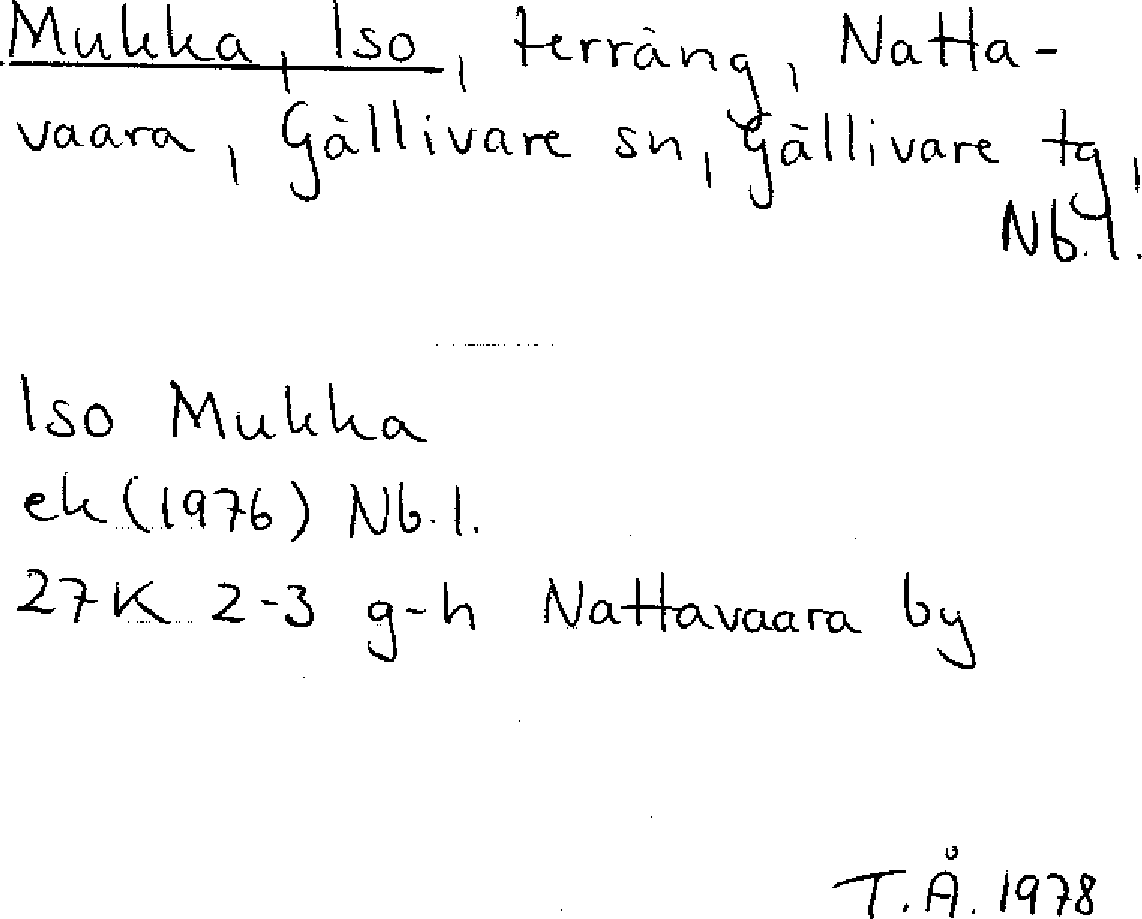 Mukka, Iso, terräng, Natta-
vaara, Gällivare sn, Gällivare tg,
Nb.l.
Iso Mukka
ek (1976) Nb.l.
27K 2-3 g-h Nattavaara by
T.Å. 1978